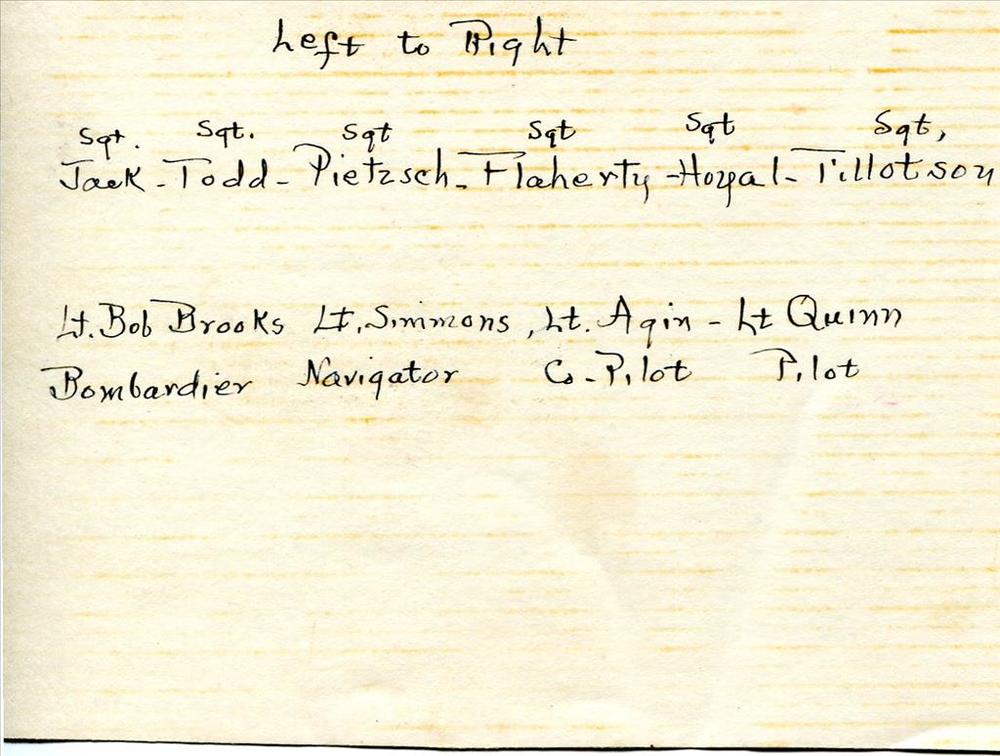 Left to Right
Sgt. Sgt. Sgt Sgt Sgt Sgt,
Jack - Todd - Pietzsch - Flaherty - Hoyal - Tillotson
Lt. Bob Brooks Lt. Simmons, Lt. Agin - Lt Quinn
Bombardier Navigator Co-Pilot Pilot